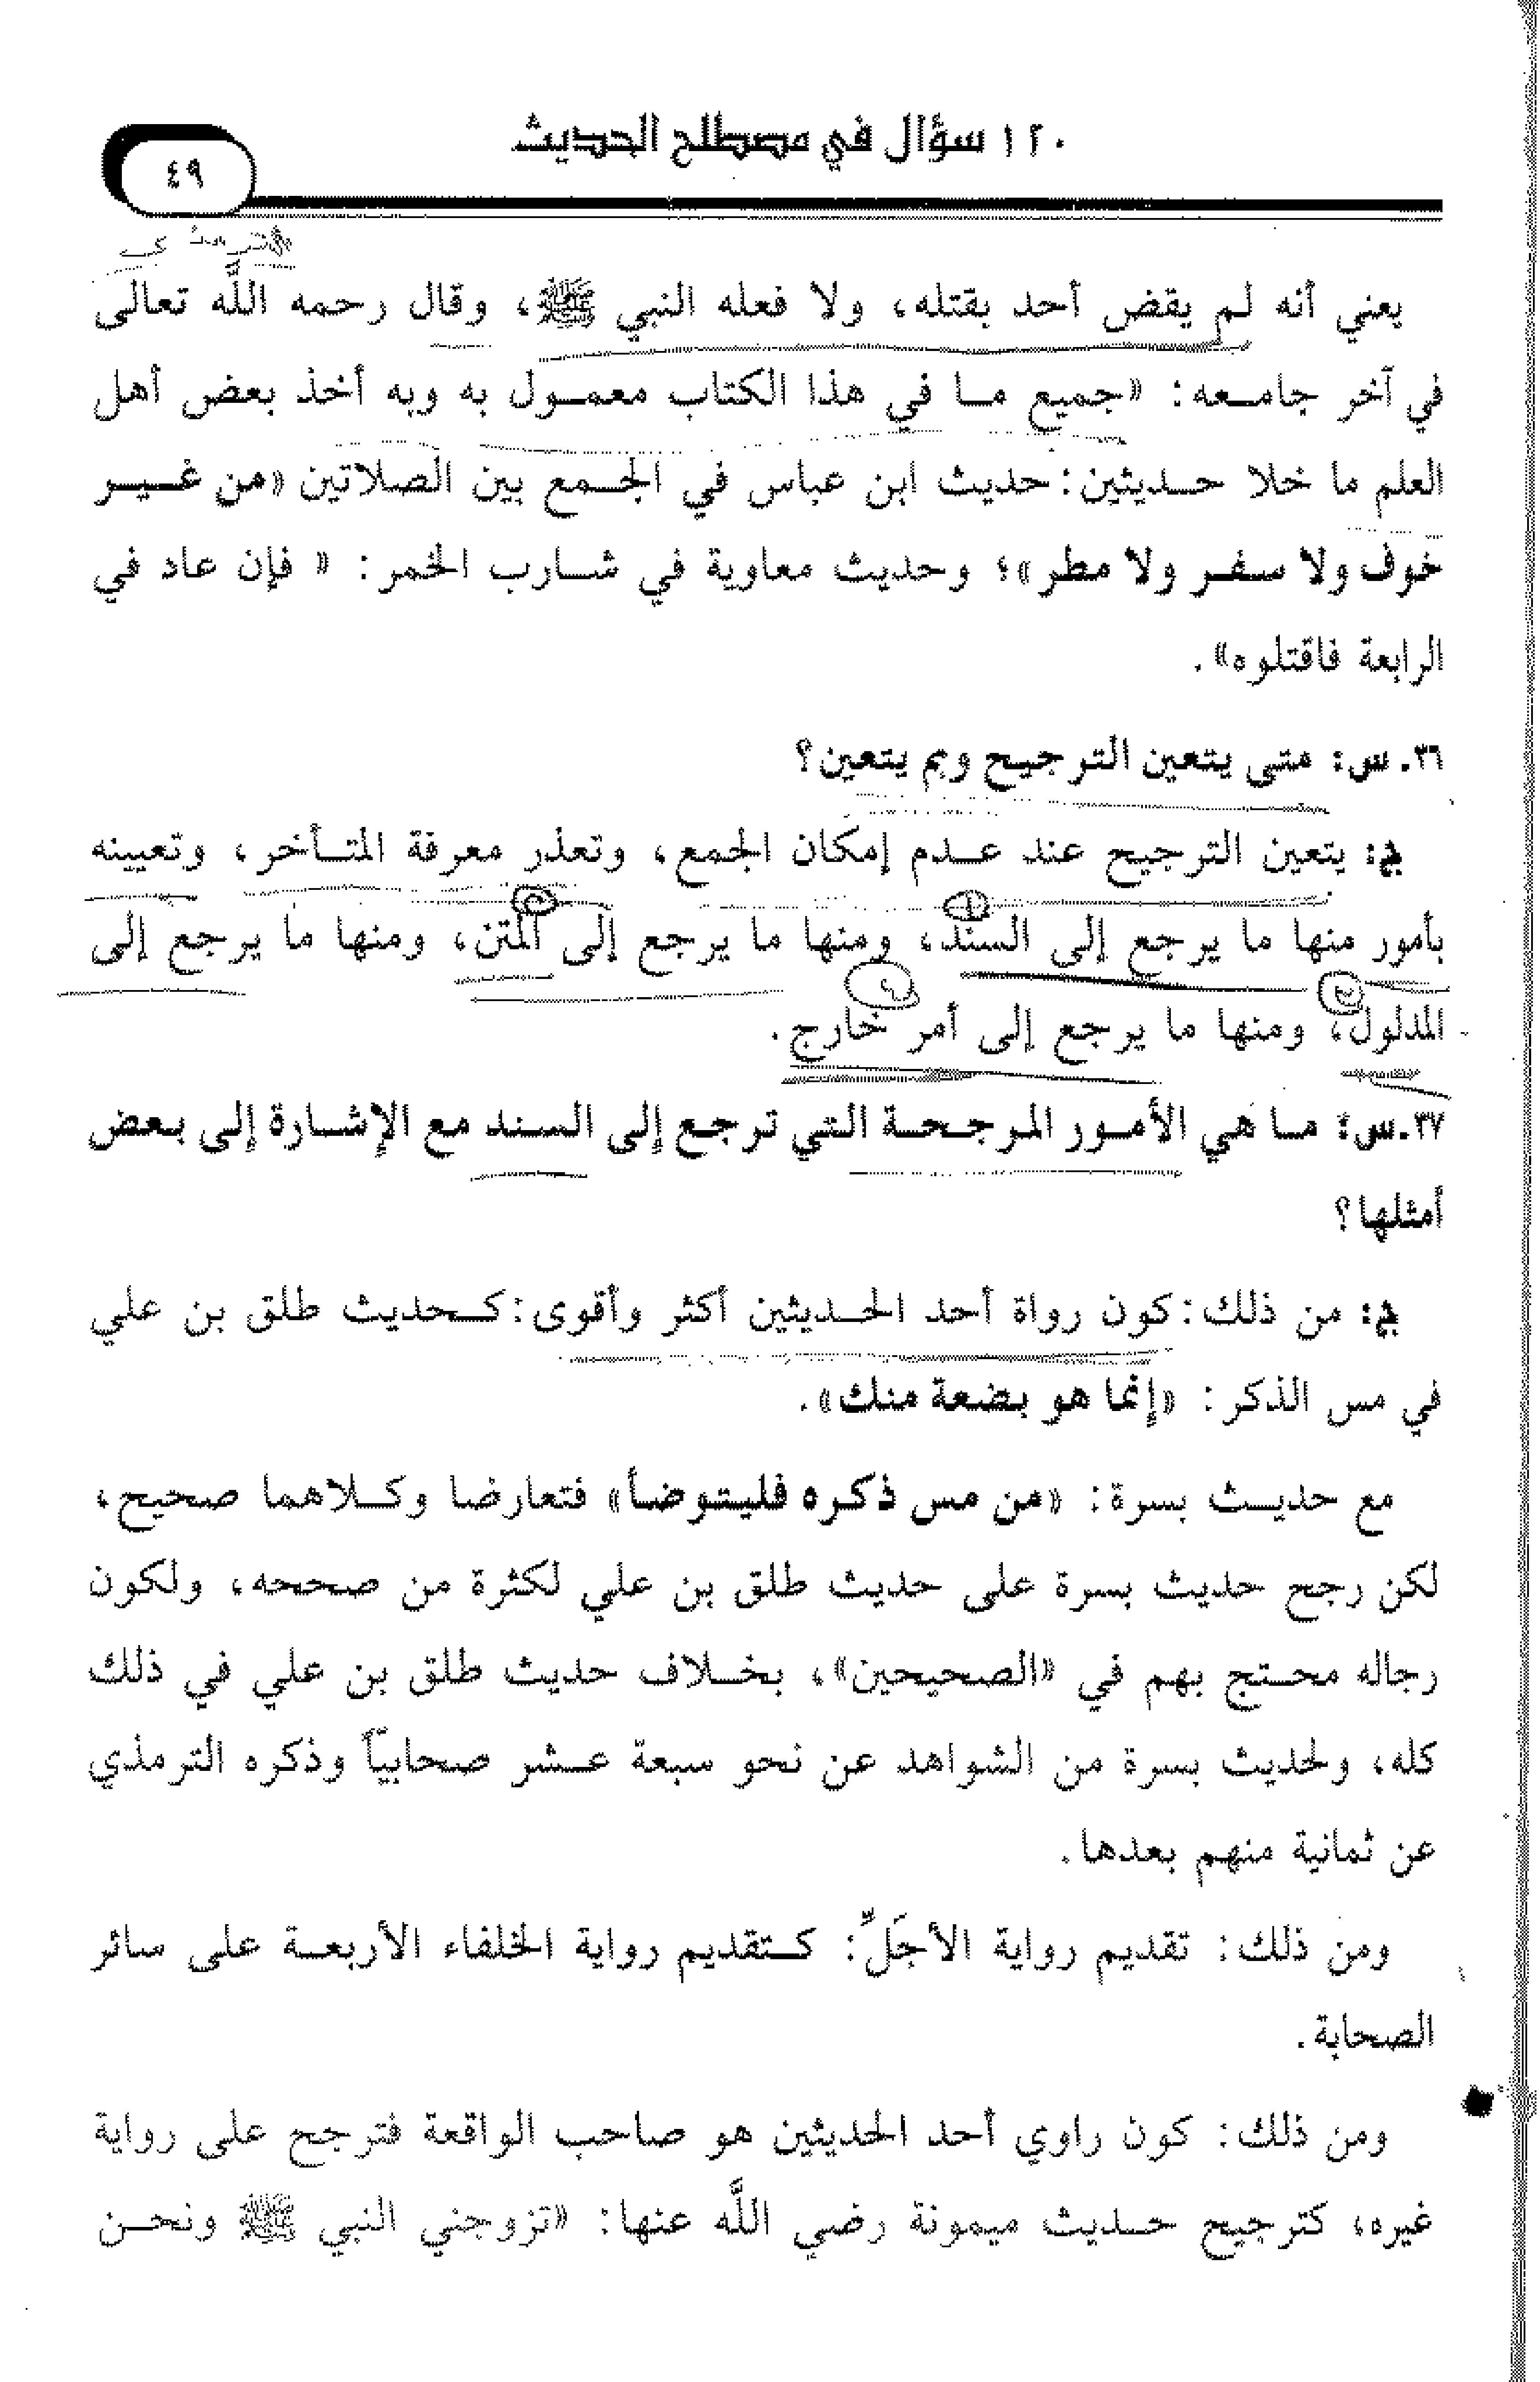 ١٢٠ سؤال في مصطلح الحديث
٤٩
الترمذي
يعني أنه لم يقض أحد بقتله، ولا فعله النبي ﷺ، وقال رحمه اللَّه تعالى
في آخر جامعه: «جميع ما في هذا الكتاب معمول به وبه أخذ بعض أهل
العلم ما خلا حديثين: حديث ابن عباس في الجمع بين الصلاتين «من غير
خوف ولا سفر ولا مطر»؛ وحديث معاوية في شارب الخمر: « فإن عاد في
الرابعة فاقتلوه» .
٣٦. س: متى يتعين الترجيح وبم يتعين؟
ج: يتعين الترجيح عند عدم إمكان الجمع، وتعذر معرفة المتأخر، وتعيينه
بأمور منها ما يرجع إلى السند، ومنها ما يرجع إلى المتن، ومنها ما يرجع إلى
المدلول، ومنها ما يرجع إلى أمر خارج.
٣٧.س: ما هي الأمور المرجحة التي ترجع إلى السند مع الإشارة إلى بعض
أمثلها؟
ج: من ذلك: كون رواة أحد الحديثين أكثر وأقوى: كحديث طلق بن علي
في مس الذكر: «إنما هو بضعة منك» .
مع حديث بسرة: «من مس ذكره فليتوضأ» فتعارضا وكلاهما صحيح،
لكن رجح حديث بسرة على حديث طلق بن علي لكثرة من صححه، ولكون
رجاله محتج بهم في «الصحيحين»، بخلاف حديث طلق بن علي في ذلك
كله، ولحديث بسرة من الشواهد عن نحو سبعة عشر صحابيّاً وذكره الترمذي
عن ثمانية منهم بعدها.
ومن ذلك: تقديم رواية الأجَلِّ: كتقديم رواية الخلفاء الأربعة على سائر
الصحابة.
ومن ذلك: كون راوي أحد الحديثين هو صاحب الواقعة فترجح على رواية
غيره، كترجيح حديث ميمونة رضي اللَّه عنها: «تزوجني النبي ﷺ ونحن